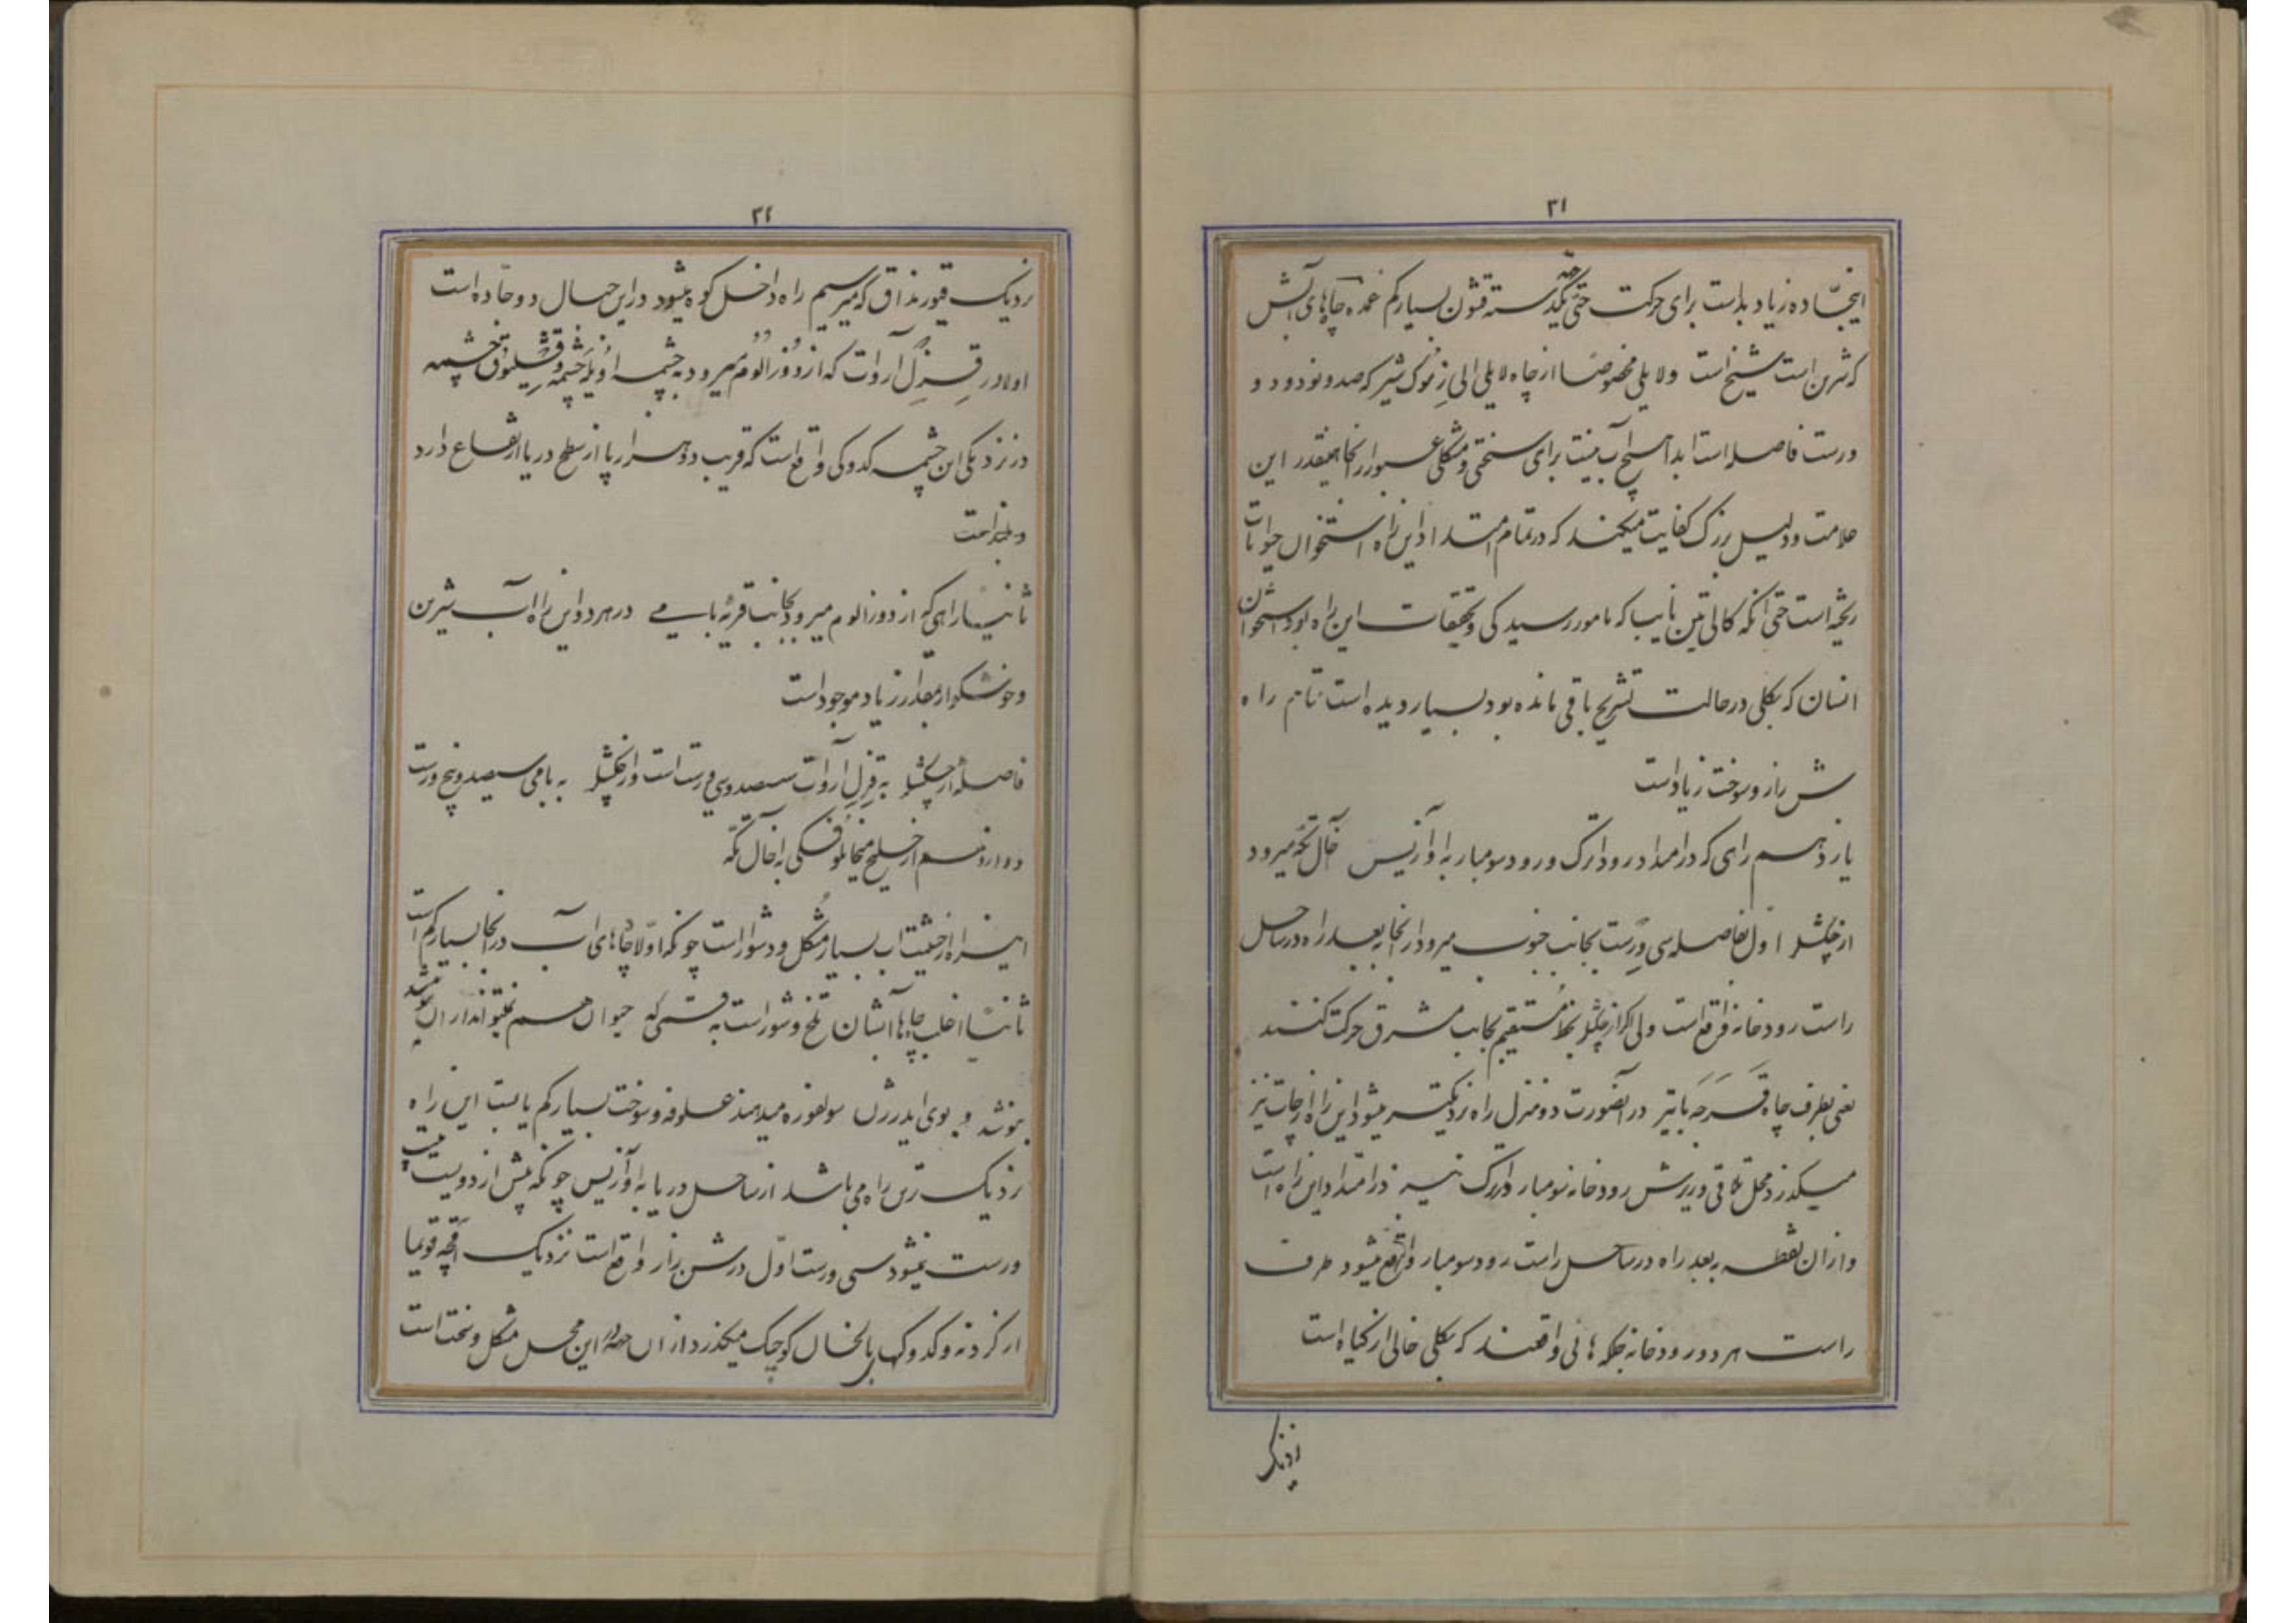 ۳۱
اینجاده زیاد بد است برای حرکت حتی یکدسته قشون بسیار کم عمده چاههای آبش
که شرین است شیخ است ولایلی مخصوصا از چاه لایلی الی شیر که صد و نود و دو
ورست فاصله است ابدا هیچ آب نیست برای سختی و مشکلی عبور از اینجا همینقدر این
علامت و دلیل بزرگ کفایت میکند که در تمام امتداد این راه استخوان حیوانات
ریخته است حتی آنکه کالی تین نایب که مامور رسیدکی و تحقیقات این راه بود استخوان
انسان که بکلی در حالت تشریح باقی مانده بود بسیار دیده است تمام راه
شن زار و سوخت زیاد است
یازدهم راهی که در امتداد رود اترک و رود سومبار به اوآزیس آخال تکه میرود
از چکشلر اول بفاصله سی ورست بجانب جنوب میرود از آنجا ببعد راه در ساحل
راست رودخانه واقع است ولی اکر از چکشلر بخط مستقیم بجانب مشرق حرکت کنند
یعنی بطرف چاه قره جه باتیر در آنصورت دو منزل راه نزدیکتر میشود این راه از چات نیز
میکذرد محل تلاقی و ریزش رودخانه سومبار و اترک نیز در امتداد این راه است
و از ان نقطه ببعد راه در ساحل راست رود سومبار واقع میشود طرف
راست هر دو رودخانه جلکه هائی واقعند که بکلی خالی از کیاه است
نزدیک
۳۲
نزدیک قیورنداق که میرسیم راه داخل کوه میشود در این حال دو جاده است
اولا در قزل آروات که از دوزالوم میرود به چشمه اوینه چشمه و چشمه
در نزدیکی این چشمه کدوکی واقع است که قریب دو هزار پا از سطح دریا ارتفاع دارد
و بلند است
ثانیا راهی که از دوزالوم میرود بجانب قریه بامی در هر دو این راه آب شیرین
و خوشکوار بمقدار زیاد موجود است
فاصله از چکشلر به قزل آروات سیصد و سی ورست است و از چکشلر به بامی سیصد و پنج ورست
دوازدهم از خلیج میخائیلوفسکی به آخال تکه
این راه از حیثیت آب بسیار مشکل و دشوار است چونکه اولا چاههای آب در آنجا بسیار کم است
ثانیا اغلب چاهها آبشان تلخ و شور است به قسمی که حیوان هم نمیتواند از ان
بنوشد و بوی ایدرژن سولفوره میدهند علوفه و سوخت بسیار کم یابست این راه
نزدیک ترین راه می باشد از ساحل دریا به اوآزیس چونکه بیش از دویست بیست
ورست نمیشود سی ورست اول در شن زار واقع است نزدیک آقچه قویما
از کردنه و کدوک بالخان کوچک میکذرد از ان این محل مشکل و سخت است